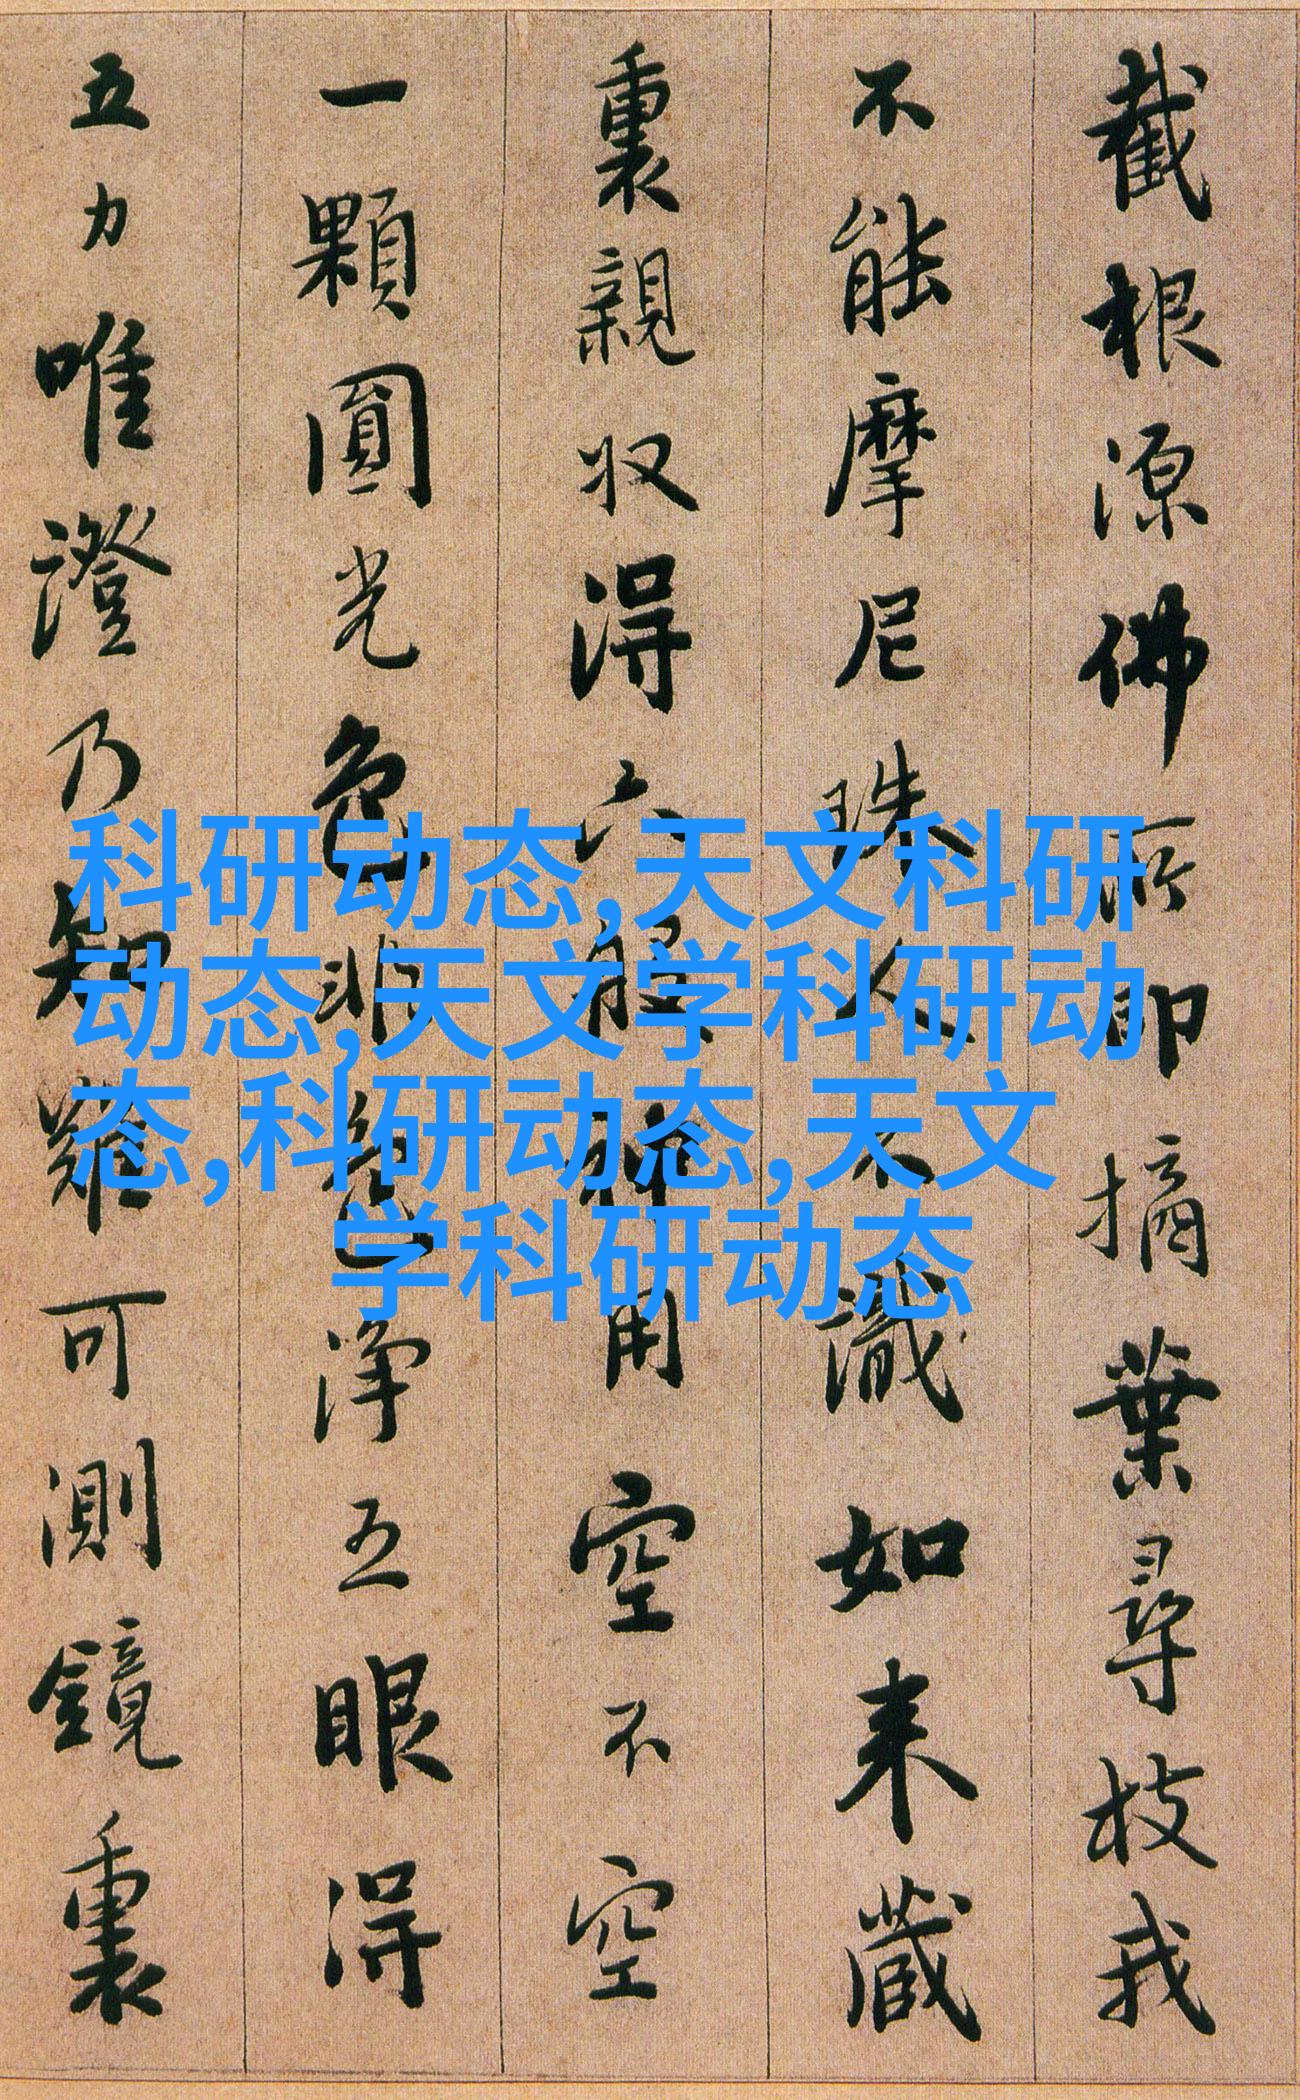 截根源佛所印摘葉尋枝我
不能摩尼珠人不識如来藏
裏親収得六般神用空不空
一顆圓光色非色淨五眼得
五力唯證乃知難可測鏡裏
科研动态,天文科研
动态,天文学科研动
态,科研动态,天文
学科研动态